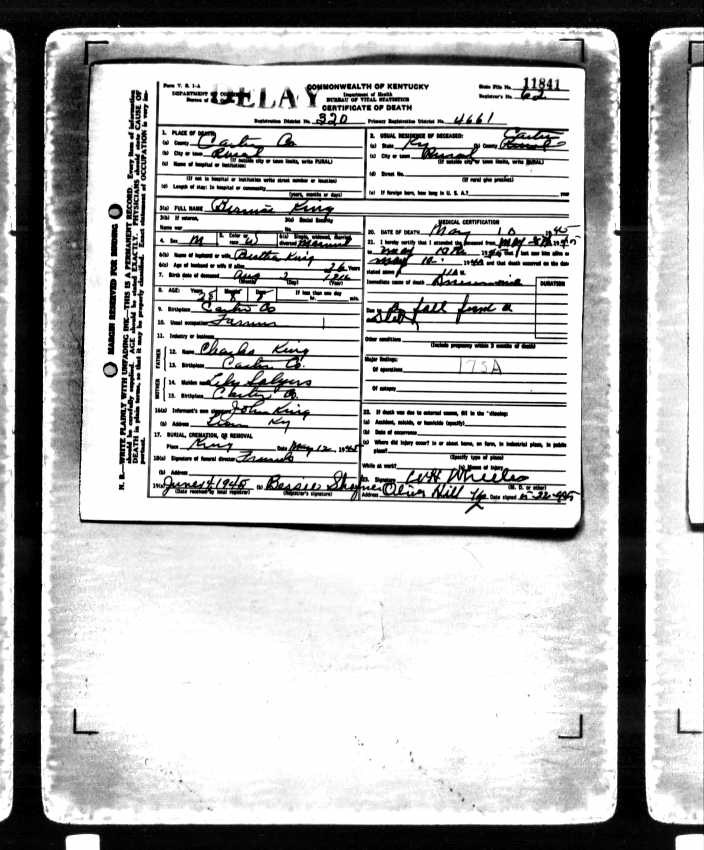 Form V. S. 1-A
COMMONWEALTH OF KENTUCKY
State File No. 11841
DEPARTMENT OF
Department of Health
Bureau of
DELAY
BUREAU OF VITAL STATISTICS
Registrar's No. 62
CERTIFICATE OF DEATH
Registration District No. 320 Primary Registration District No. 4661
1. PLACE OF DEATH:
(a) County Carter Co
(b) City or town Rural
(If outside city or town limits, write RURAL)
(c) Name of hospital or institution:
(If not in hospital or institution write street number or location)
(d) Length of stay: in hospital or community
(years, months or days)
2. USUAL RESIDENCE OF DECEASED:
(a) State Ky (b) County Carter
(c) City or town Rural
(If outside city or town limits, write RURAL)
(d) Street No.
(If rural give precinct)
(e) If foreign born, how long in U. S. A.? year
3(a) FULL NAME King
3(b) If veteran, 3(c) Social Security
Name war No.
4. Sex M 5. Color or race W 6(a) Single, widowed, married, divorced Married
6(b) Name of husband or wife Bertha King
6(c) Age of husband or wife if alive 26 Years
7. Birth date of deceased Aug 2
(Month) (Day) (Year)
8. AGE: Years Months Days If less than one day
28 8 8 hr. min.
9. Birthplace Carter Co
10. Usual occupation Farmer
11. Industry or business
FATHER
12. Name Charles King
13. Birthplace Carter Co.
MOTHER
14. Maiden name Lily Salyers
15. Birthplace Carter Co.
16(a) Informant's own signature John King
(b) Address Ky
17. BURIAL, CREMATION, OR REMOVAL
Place King Date May 12, 1945
18(a) Signature of funeral director Friends
(b) Address
19(a) June 4, 1945 (b) Bessie
(Date received by local registrar) (Registrar's signature)
MEDICAL CERTIFICATION
20. DATE OF DEATH May 10 1945
21. I hereby certify that I attended the deceased from May 8th 1945
to May 10th 1945 that I last saw him alive on
May 10. 1945 and that death occurred on the date
stated above at 11 A M.
Immediate cause of death
DURATION
Due to a fall from a
Other conditions
(Include pregnancy within 3 months of death)
Major findings:
Of operations
175A
Of autopsy
22. If death was due to external causes, fill in the following:
(a) Accident, suicide, or homicide (specify)
(b) Date of occurrence
(c) Where did injury occur? in or about home, on farm, in industrial place, in public
place?
(Specify type of place)
While at work? (e) Means of injury
23. Signature WH Wheeler
(M. D. or other)
Address Olive Hill Ky. Date signed 5-22-1945
MARGIN RESERVED FOR BINDING
N. B.—WRITE PLAINLY, WITH UNFADING INK—THIS IS A PERMANENT RECORD. Every item of information
should be carefully supplied. AGE should be stated EXACTLY. PHYSICIANS should state CAUSE OF
DEATH in plain terms, so that it may be properly classified. Exact statement of OCCUPATION is very im-
portant.